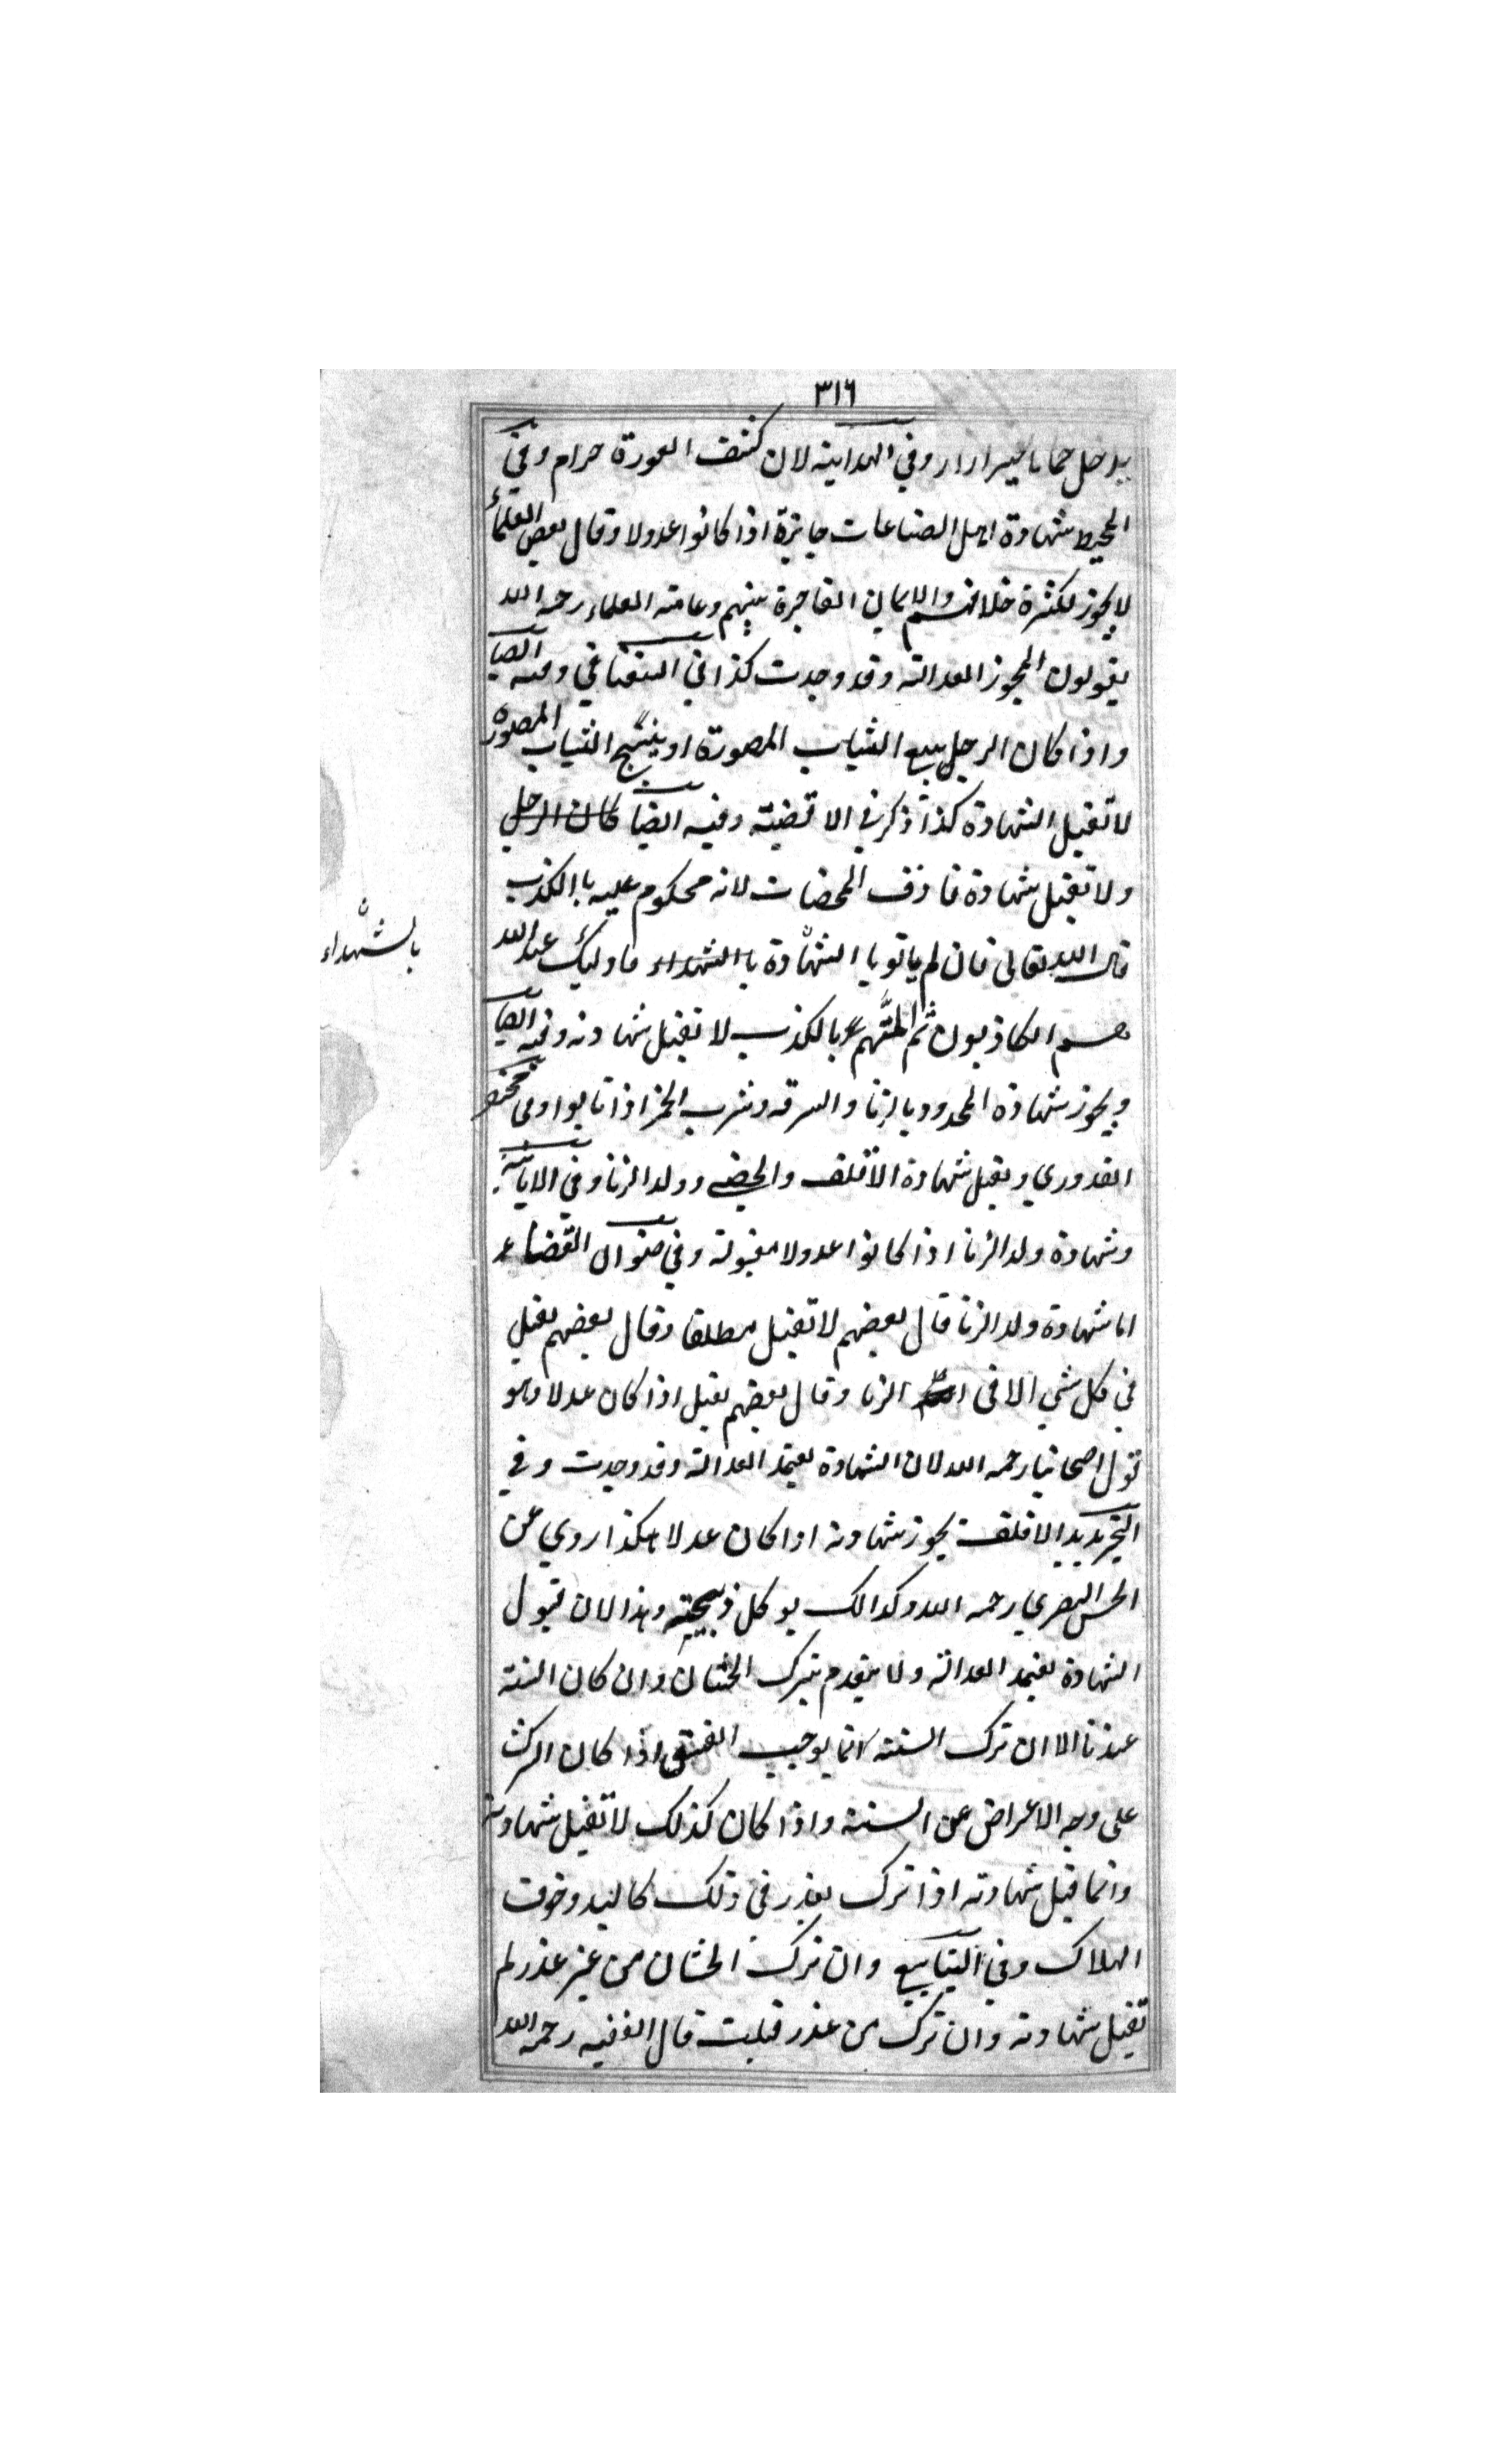 ٣١٦
يدخل حماما بغير ازار وفي الهداية لان كشف العورة حرام وفي
المحيط شهادة اهل الصناعات جايزة اذا كانوا عدولا وقال بعض العلماء
لا يجوز لكثرة خلافهم والايمان الفاجرة بينهم وعامة العلماء رحمه الله
يقولون المجوز العدالة وقد وجدت كذا في السغناقي وفيه ايضا
واذا كان الرجل يبيع الثياب المصورة او ينسج الثياب المصورة
لا تقبل الشهادة كذا ذكر في الاقضية وفيه ايضا كان الرجل
ولا تقبل شهادة قاذف المحصنات لانه محكوم عليه باالكذب
قال الله تعالى فان لم ياتو باا الشهادة باالشهداء فاوليك عند الله
هم الكاذبون ثم المتهم بالكذب لا تقبل شهادته وفيه ايضا
ويجوز شهادة المحدود بالزنا والسرقة وشرب الخمر اذا تابوا وفي مختصر
القدوري ويقبل شهادة الاقلف والخصي وولد الزنا وفي الابانة
وشهادة ولد الزنا اذا كانوا عدولا مقبولة وفي صنوان القضاء
اما شهادة ولد الزنا قال بعضهم لا تقبل مطلقا وقال بعضهم يقبل
في كل شي الا في الزنا وقال بعضهم يقبل اذا كان عدلا وهو
قول اصحابنا رحمه الله لان الشهادة يعتمد العدالة وقد وجدت وفي
التجريد الاقلف يجوز شهادته اذا كان عدلا هكذا روي عن
الحسن البصري رحمه الله وكذالك يوكل ذبيحته وهذا لان قبول
الشهادة يعتمد العدالة ولا ينقدم بترك الختان وان كان السنة
عندنا الا ان ترك السنة انما يوجب الفسق اذا كان الترك
على وجه الاعراض عن السنة واذا كان كذلك لا تقبل شهادته
وانما قبل شهادته اذا ترك بعذر في ذلك وخوف
الهلاك وفي الينابيع وان ترك الختان من غير عذر لم
تقبل شهادته وان ترك من عذر قبلت قال الفقيه رحمه الله
بالشهداء